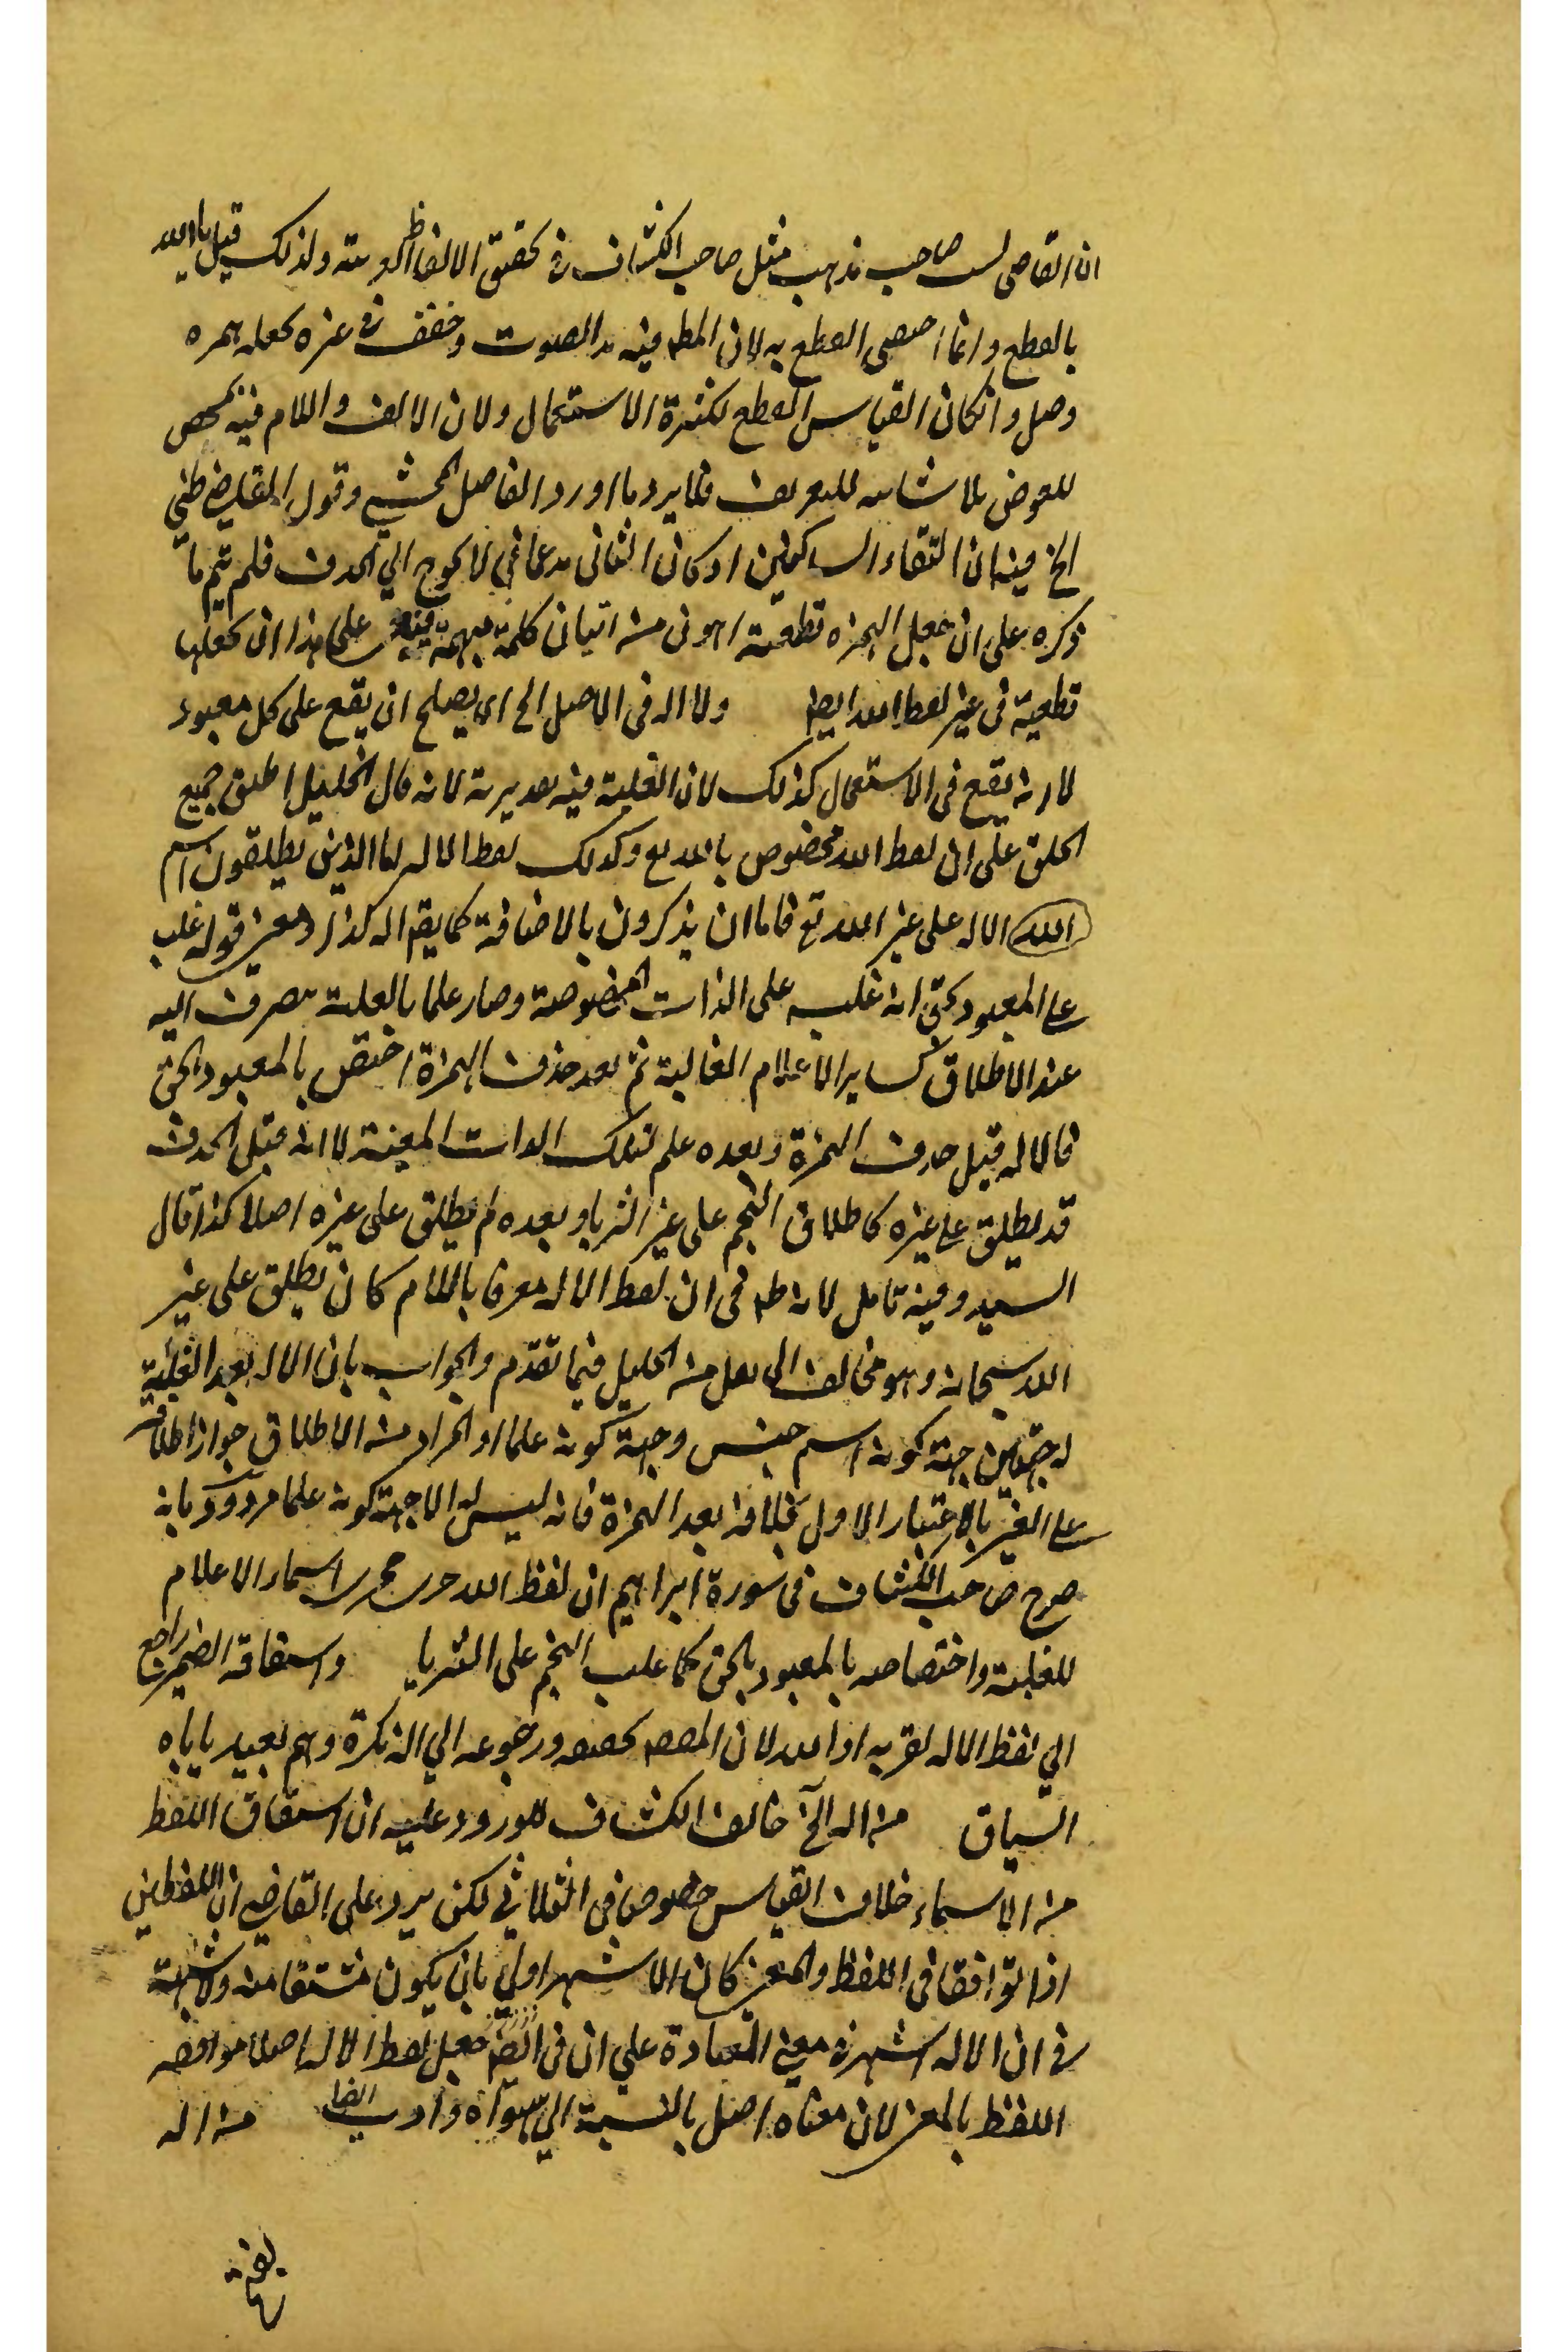 ان القاضى ليس صاحب مذهب مثل صاحب الكشاف فى تحقيق الالفاظ العربية ولذلك قيل يا الله
بالقطع وانما اختص القطع به لان المط فيه مد الصوت وخفف فى غيره بجعله همزه
وصل وانكان القياس القطع لكثرة الاستعمال ولان الالف واللام فيه تمحض
للعوض بلا شائبه للتعريف فلا يرد ما اورد الفاضل المحشى وقول
الخ فيه ان التقاء الساكنين اذ كان الثانى مدغما فى لا يحوج الي الحذف فلم يتم ما
ذكره على ان جعل الهمزه قطعية اهون من اتيان كلمة مبهمة على هذا ان يجعلها
قطعية فى غير لفظ الله ايضا ولا اله فى الاصل الخ اى يصلح ان يقع على كل معبود
لا انه يقع فى الاستعمال كذلك لان الغلبة فيه تقديرية لانه قال الخليل اطلق جميع
الخلق على ان لفظ الله مخصوص بالله تع وكذلك لفظ الاله اما الذين يطلقون اسم
الله الاله على غير الله تع فاما ان يذكرون بالاضافة كما يقم اله كذا ومعنى قوله غلب
على المعبود بحق انه غلب على الذات المخصوصة وصار علما بالغلبة ينصرف اليه
عند الاطلاق كساير الاعلام الغالبة ثم بعد حذف الهمزة اختص بالمعبود بالحق
فالاله قبل حذف الهمزة وبعده علم لتلك الذات المعينة لا انه قبل الحذف
قد يطلق على غيره كاطلاق النجم على غير الثريا وبعده لم يطلق على غيره اصلا كذا قال
السيد وفيه تامل لانه ظ فى ان لفظ الاله معرفا باللام كان يطلق على غير
الله سبحانه وهو مخالف الى نقل من الخليل فيما تقدم والجواب بان الاله بعد الغلبة
له جهتين جهة كونه اسم جنس وجهة كونه علما والمراد من الاطلاق جواز اطلاقه
على الغير بالاعتبار الاول بخلافه بعد الهمزة فانه ليس له الا جهة كونه علما مردود بانه
صرح صاحب الكشاف فى سورة ابراهيم ان لفظ الله جرى مجرى اسماء الاعلام
للغلبة واختصاصه بالمعبود بالحق كما غلب النجم على الثريا واشتقاقه الضمير راجع
الي لفظ الاله لقربه او الله لان المقصم تحقيقه ورجوعه الي النكرة وهم بعيد ياباه
السياق من اله الخ خالف الكشاف للورود عليه ان اشتقاق اللفظ
من الاسماء خلاف القياس خصوصا فى الثلاثي لكن يرد على القاضي ان اللفظين
اذا توافقا فى اللفظ والمعنى كان الاشهر اولي بان يكون مشتقا منه ولا شبهة
فى ان الاله اشهر فى معنى العبادة علي ان فى جعل لفظ الاله اصلا موافقه
اللفظ بالمعنى لان معناه اصل بالنسبة الي سواه وادب ايضا من اله